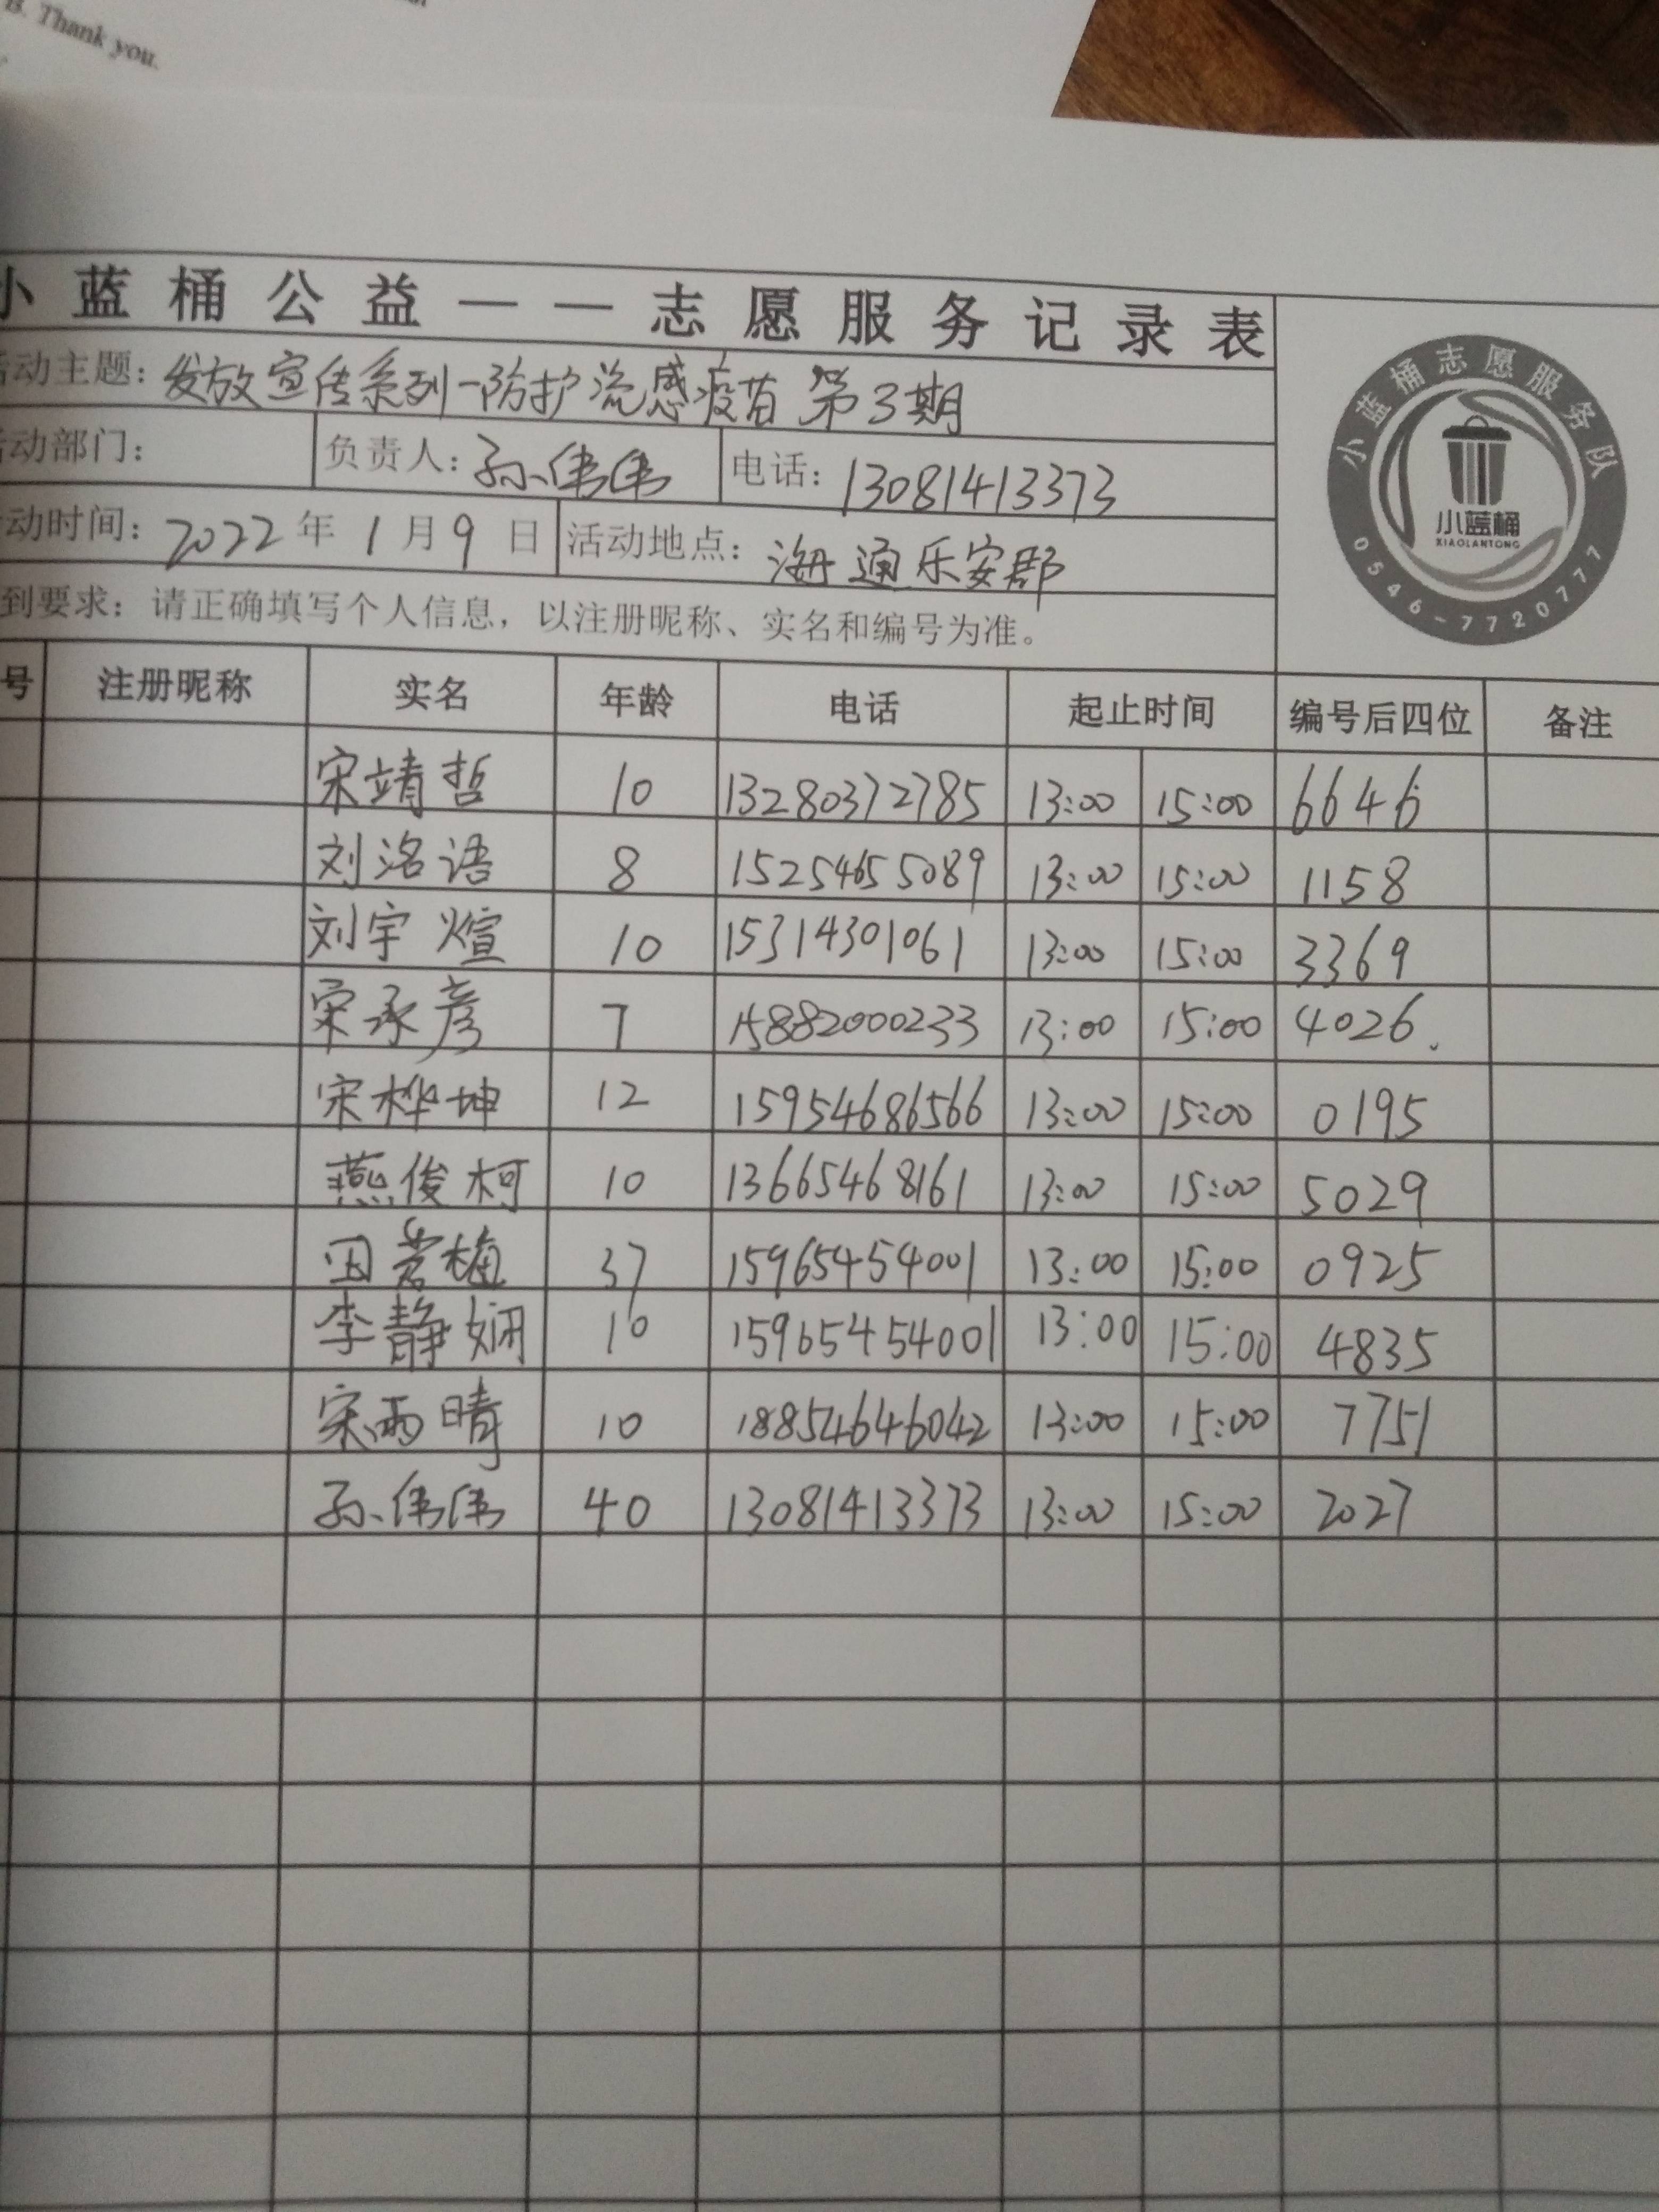 B. Thank you.
小蓝桶公益——志愿服务记录表
活动主题：发放宣传系列-防护流感疫苗 第3期
活动部门： 负责人：孙伟伟 电话：13081413373
活动时间：2022年1月9日 活动地点：海通乐安郡
到要求：请正确填写个人信息，以注册昵称、实名和编号为准。
小蓝桶志愿服务队
小蓝桶
XIAOLANTONG
0546-7720777
号 注册昵称 实名 年龄 电话 起止时间 编号后四位 备注
宋靖哲 10 13280372785 13:00 15:00 6646
刘洺语 8 15254655089 13:00 15:00 1158
刘宇煊 10 15314301061 13:00 15:00 3369
宋承彦 7 15882000233 13:00 15:00 4026.
宋桦坤 12 15954686566 13:00 15:00 0195
燕俊柯 10 13665468161 13:00 15:00 5029
田梅 37 15965454001 13:00 15:00 0925
李静娴 10 15965454001 13:00 15:00 4835
宋雨晴 10 18854646042 13:00 15:00 7751
孙伟伟 40 13081413373 13:00 15:00 2027